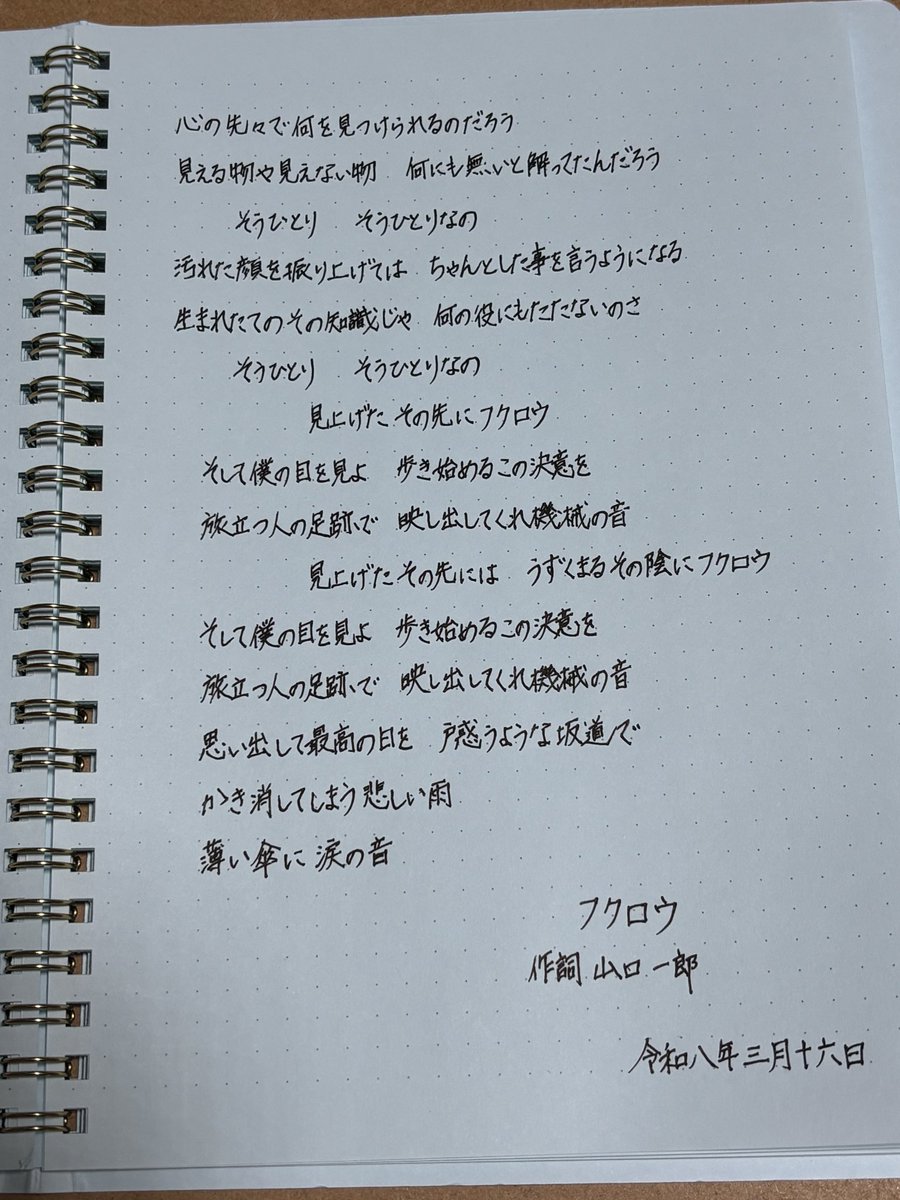 心の先々で何を見つけられるのだろう
見える物や見えない物　何にも無いと解ってたんだろう
そうひとり　そうひとりなの
汚れた顔を振り上げては　ちゃんとした事を言うようになる
生まれたてのその知識じゃ　何の役にもたたないのさ
そうひとり　そうひとりなの
見上げた その先に フクロウ
そして僕の目を見よ　歩き始めるこの決意を
旅立つ人の足跡で　映し出してくれ機械の音
見上げた その先には　うずくまる その陰に フクロウ
そして僕の目を見よ　歩き始めるこの決意を
旅立つ人の足跡で　映し出してくれ機械の音
思い出して最高の日を　戸惑うような坂道で
かき消してしまう 悲しい雨
薄い傘に 涙の音
フクロウ
作詞 山口 一郎
令和八年三月十六日